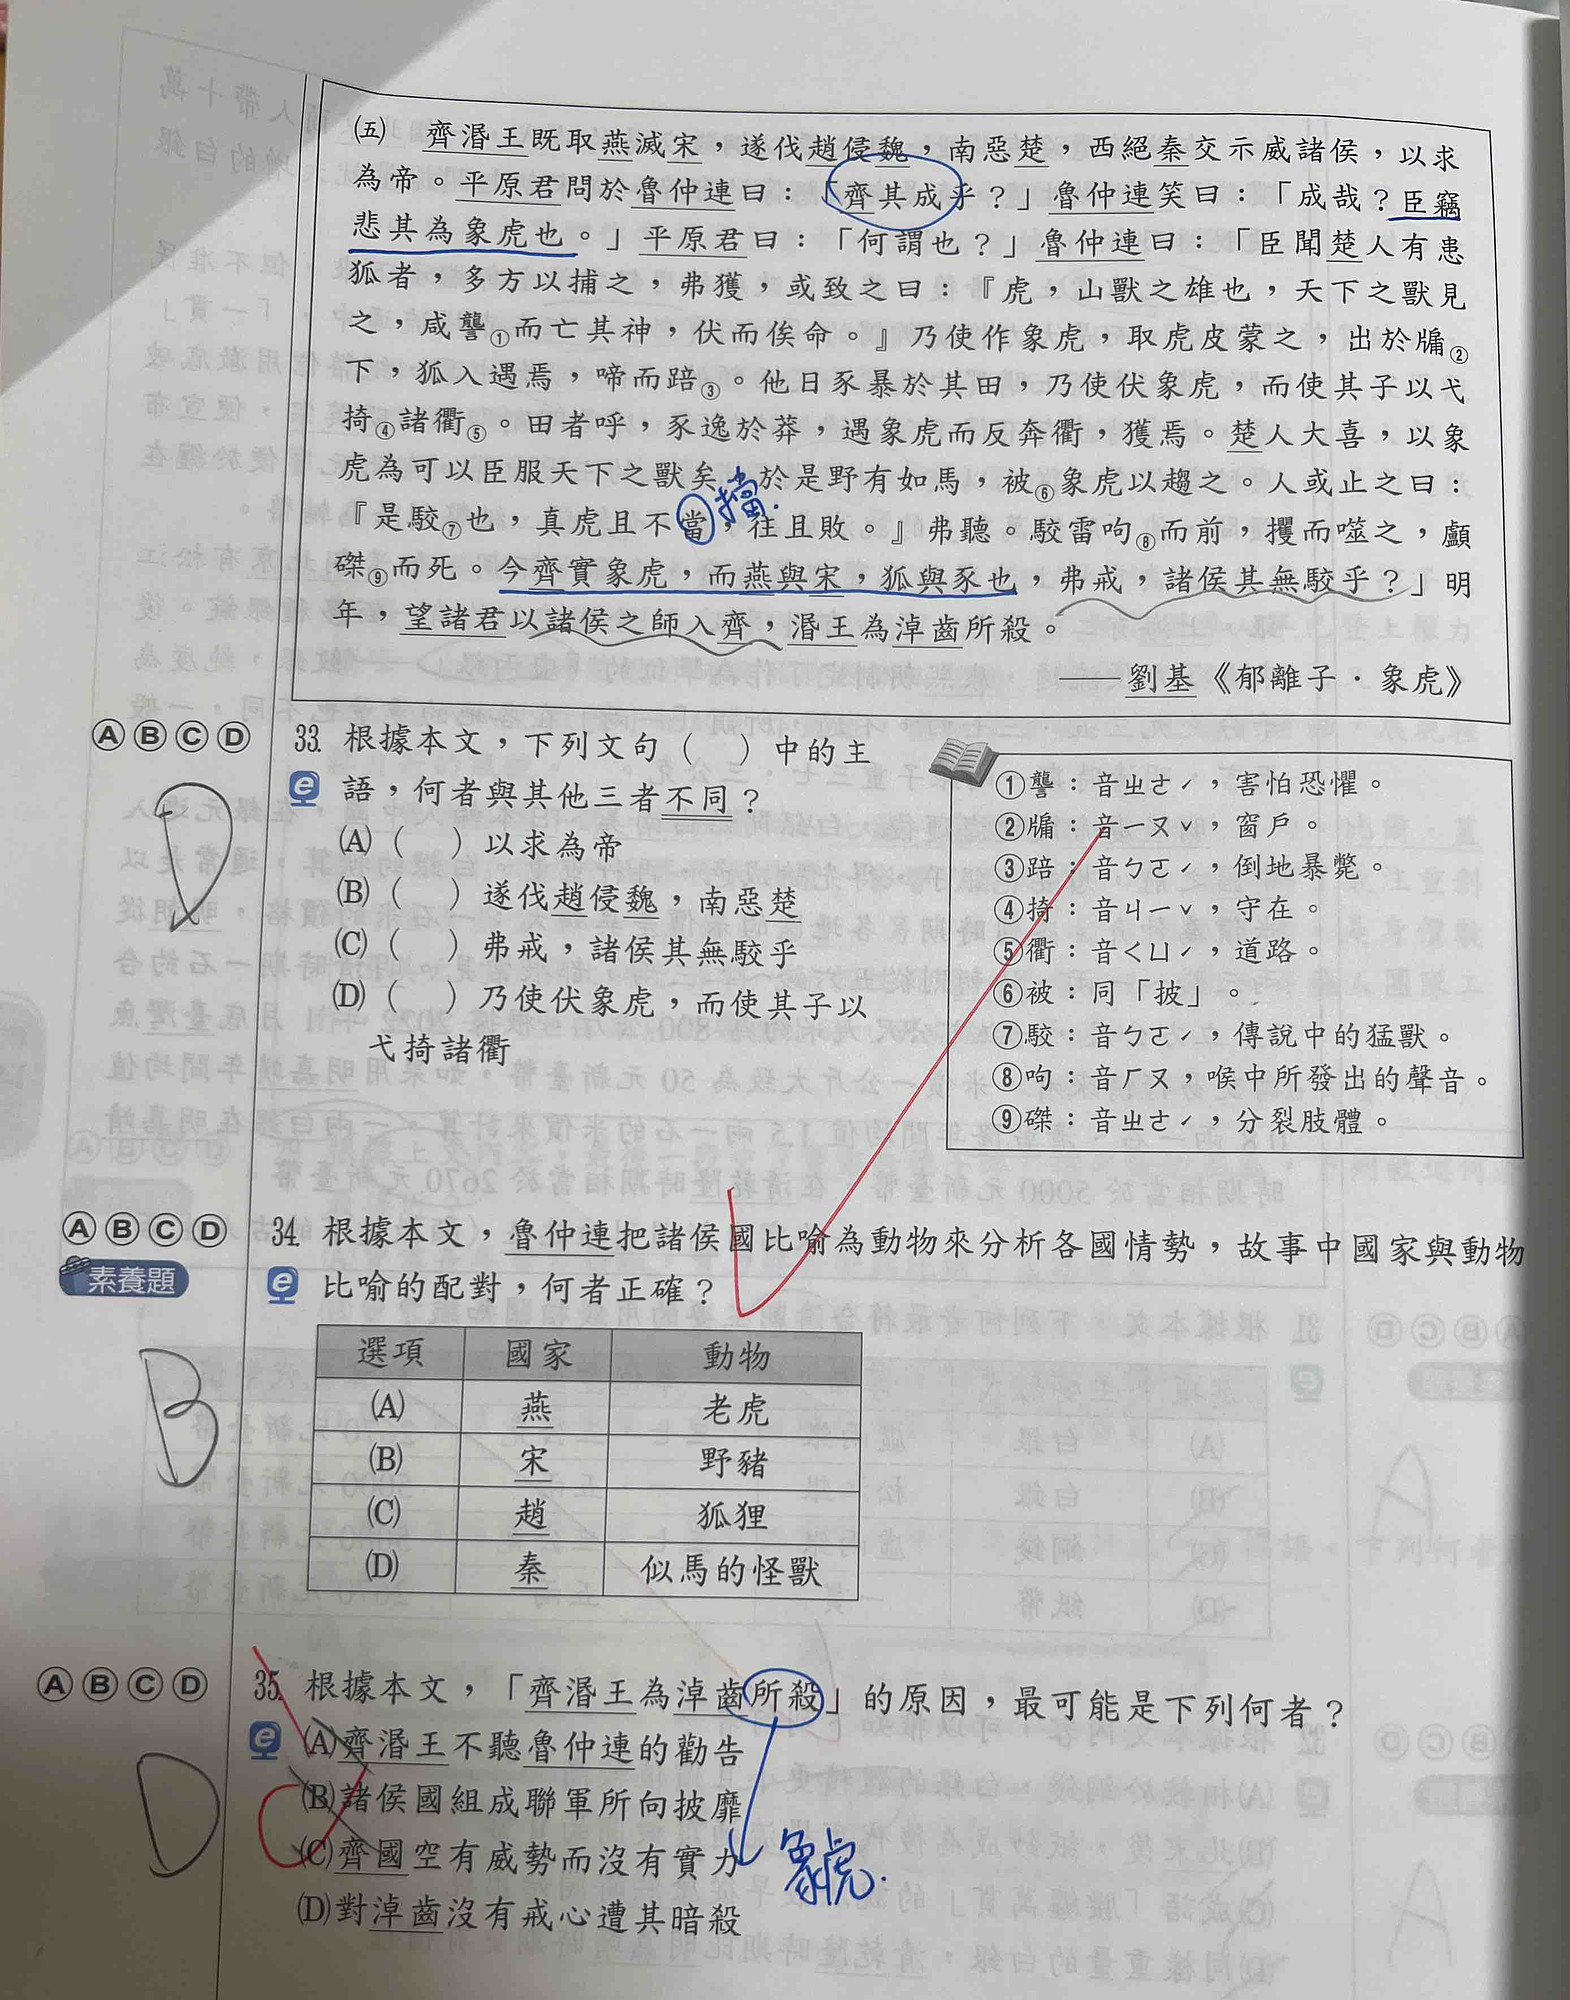 ㈤ 齊湣王既取燕滅宋，遂伐趙侵魏，南惡楚，西絕秦交示威諸侯，以求
為帝。平原君問於魯仲連曰：「齊其成乎？」魯仲連笑曰：「成哉？臣竊
悲其為象虎也。」平原君曰：「何謂也？」魯仲連曰：「臣聞楚人有患
狐者，多方以捕之，弗獲，或致之曰：『虎，山獸之雄也，天下之獸見
之，咸讋①而亡其神，伏而俟命。』乃使作象虎，取虎皮蒙之，出於牖②
下，狐入遇焉，啼而踣③。他日豕暴於其田，乃使伏象虎，而使其子以弋
掎④諸衢⑤。田者呼，豕逸於莽，遇象虎而反奔衢，獲焉。楚人大喜，以象
虎為可以臣服天下之獸矣，於是野有如馬，被⑥象虎以趨之。人或止之曰：
擋
『是駮⑦也，真虎且不當，往且敗。』弗聽。駮雷呴⑧而前，攫而噬之，顱
磔⑨而死。今齊實象虎，而燕與宋，狐與豕也，弗戒，諸侯其無駮乎？」明
年，望諸君以諸侯之師入齊，湣王為淖齒所殺。
——劉基《郁離子．象虎》
ⒶⒷⒸⒹ 33. 根據本文，下列文句（ ）中的主
語，何者與其他三者不同？
D
(A)（ ）以求為帝
(B)（ ）遂伐趙侵魏，南惡楚
(C)（ ）弗戒，諸侯其無駮乎
(D)（ ）乃使伏象虎，而使其子以
弋掎諸衢
①讋：音ㄓㄜˊ，害怕恐懼。
②牖：音ㄧㄡˇ，窗戶。
③踣：音ㄅㄛˊ，倒地暴斃。
④掎：音ㄐㄧˇ，守在。
⑤衢：音ㄑㄩˊ，道路。
⑥被：同「披」。
⑦駮：音ㄅㄛˊ，傳說中的猛獸。
⑧呴：音ㄏㄡ，喉中所發出的聲音。
⑨磔：音ㄓㄜˊ，分裂肢體。
ⒶⒷⒸⒹ 34. 根據本文，魯仲連把諸侯國比喻為動物來分析各國情勢，故事中國家與動物
素養題
比喻的配對，何者正確？
選項 國家 動物
(A) 燕 老虎
B
(B) 宋 野豬
(C) 趙 狐狸
(D) 秦 似馬的怪獸
ⒶⒷⒸⒹ 35. 根據本文，「齊湣王為淖齒所殺」的原因，最可能是下列何者？
(A)齊湣王不聽魯仲連的勸告
D
(B)諸侯國組成聯軍所向披靡
C
(C)齊國空有威勢而沒有實力
象虎.
(D)對淖齒沒有戒心遭其暗殺